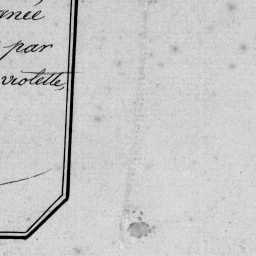 anée
par
violette,